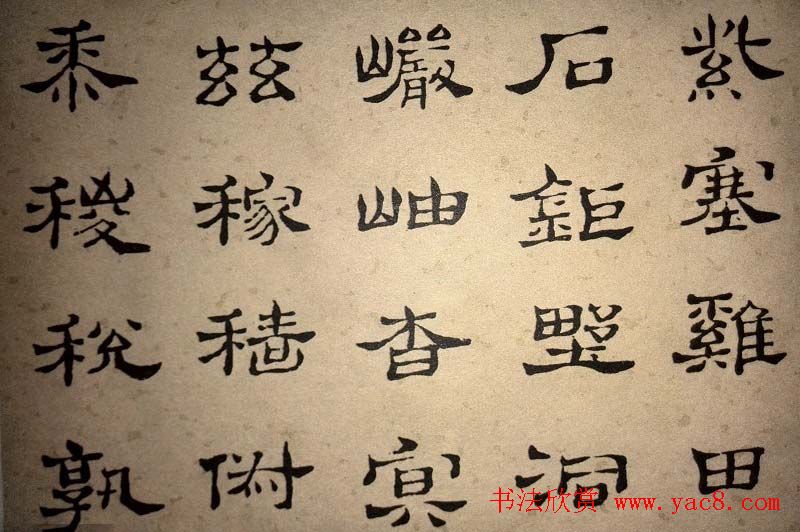 紫塞雞田
石鉅野洞
巖岫杳冥
茲稼穡俶
黍稷稅孰
书法欣赏 www.yac8.com